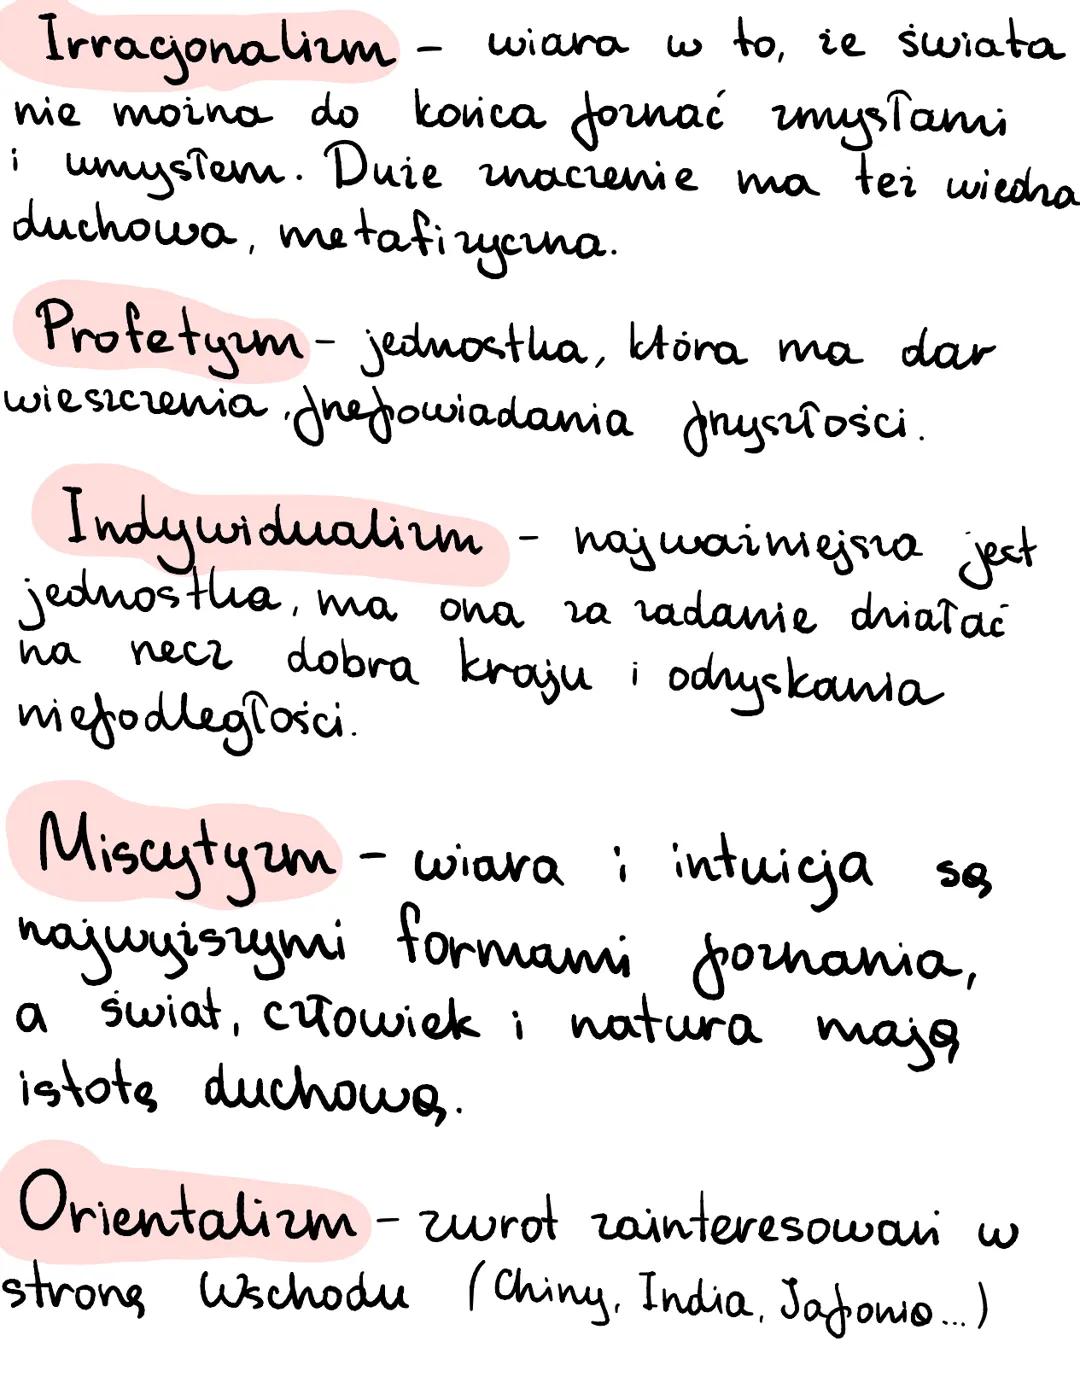 Irracjonalizm - wiara w to, że świata
nie można do końca poznać zmysłami
i umysłem. Duże znaczenie ma też wiedza
duchowa, metafizyczna.
Profetyzm - jednostka, która ma dar
wieszczenia, przepowiadania przyszłości.
Indywidualizm - najważniejsza jest
jednostka, ma ona za zadanie działać
na rzecz dobra kraju i odzyskania
niepodległości.
Miscytyzm - wiara i intuicja są
najwyższymi formami poznania,
a świat, człowiek i natura mają
istotę duchową.
Orientalizm - zwrot zainteresowań w
stronę Wschodu (Chiny, India, Japonia...)